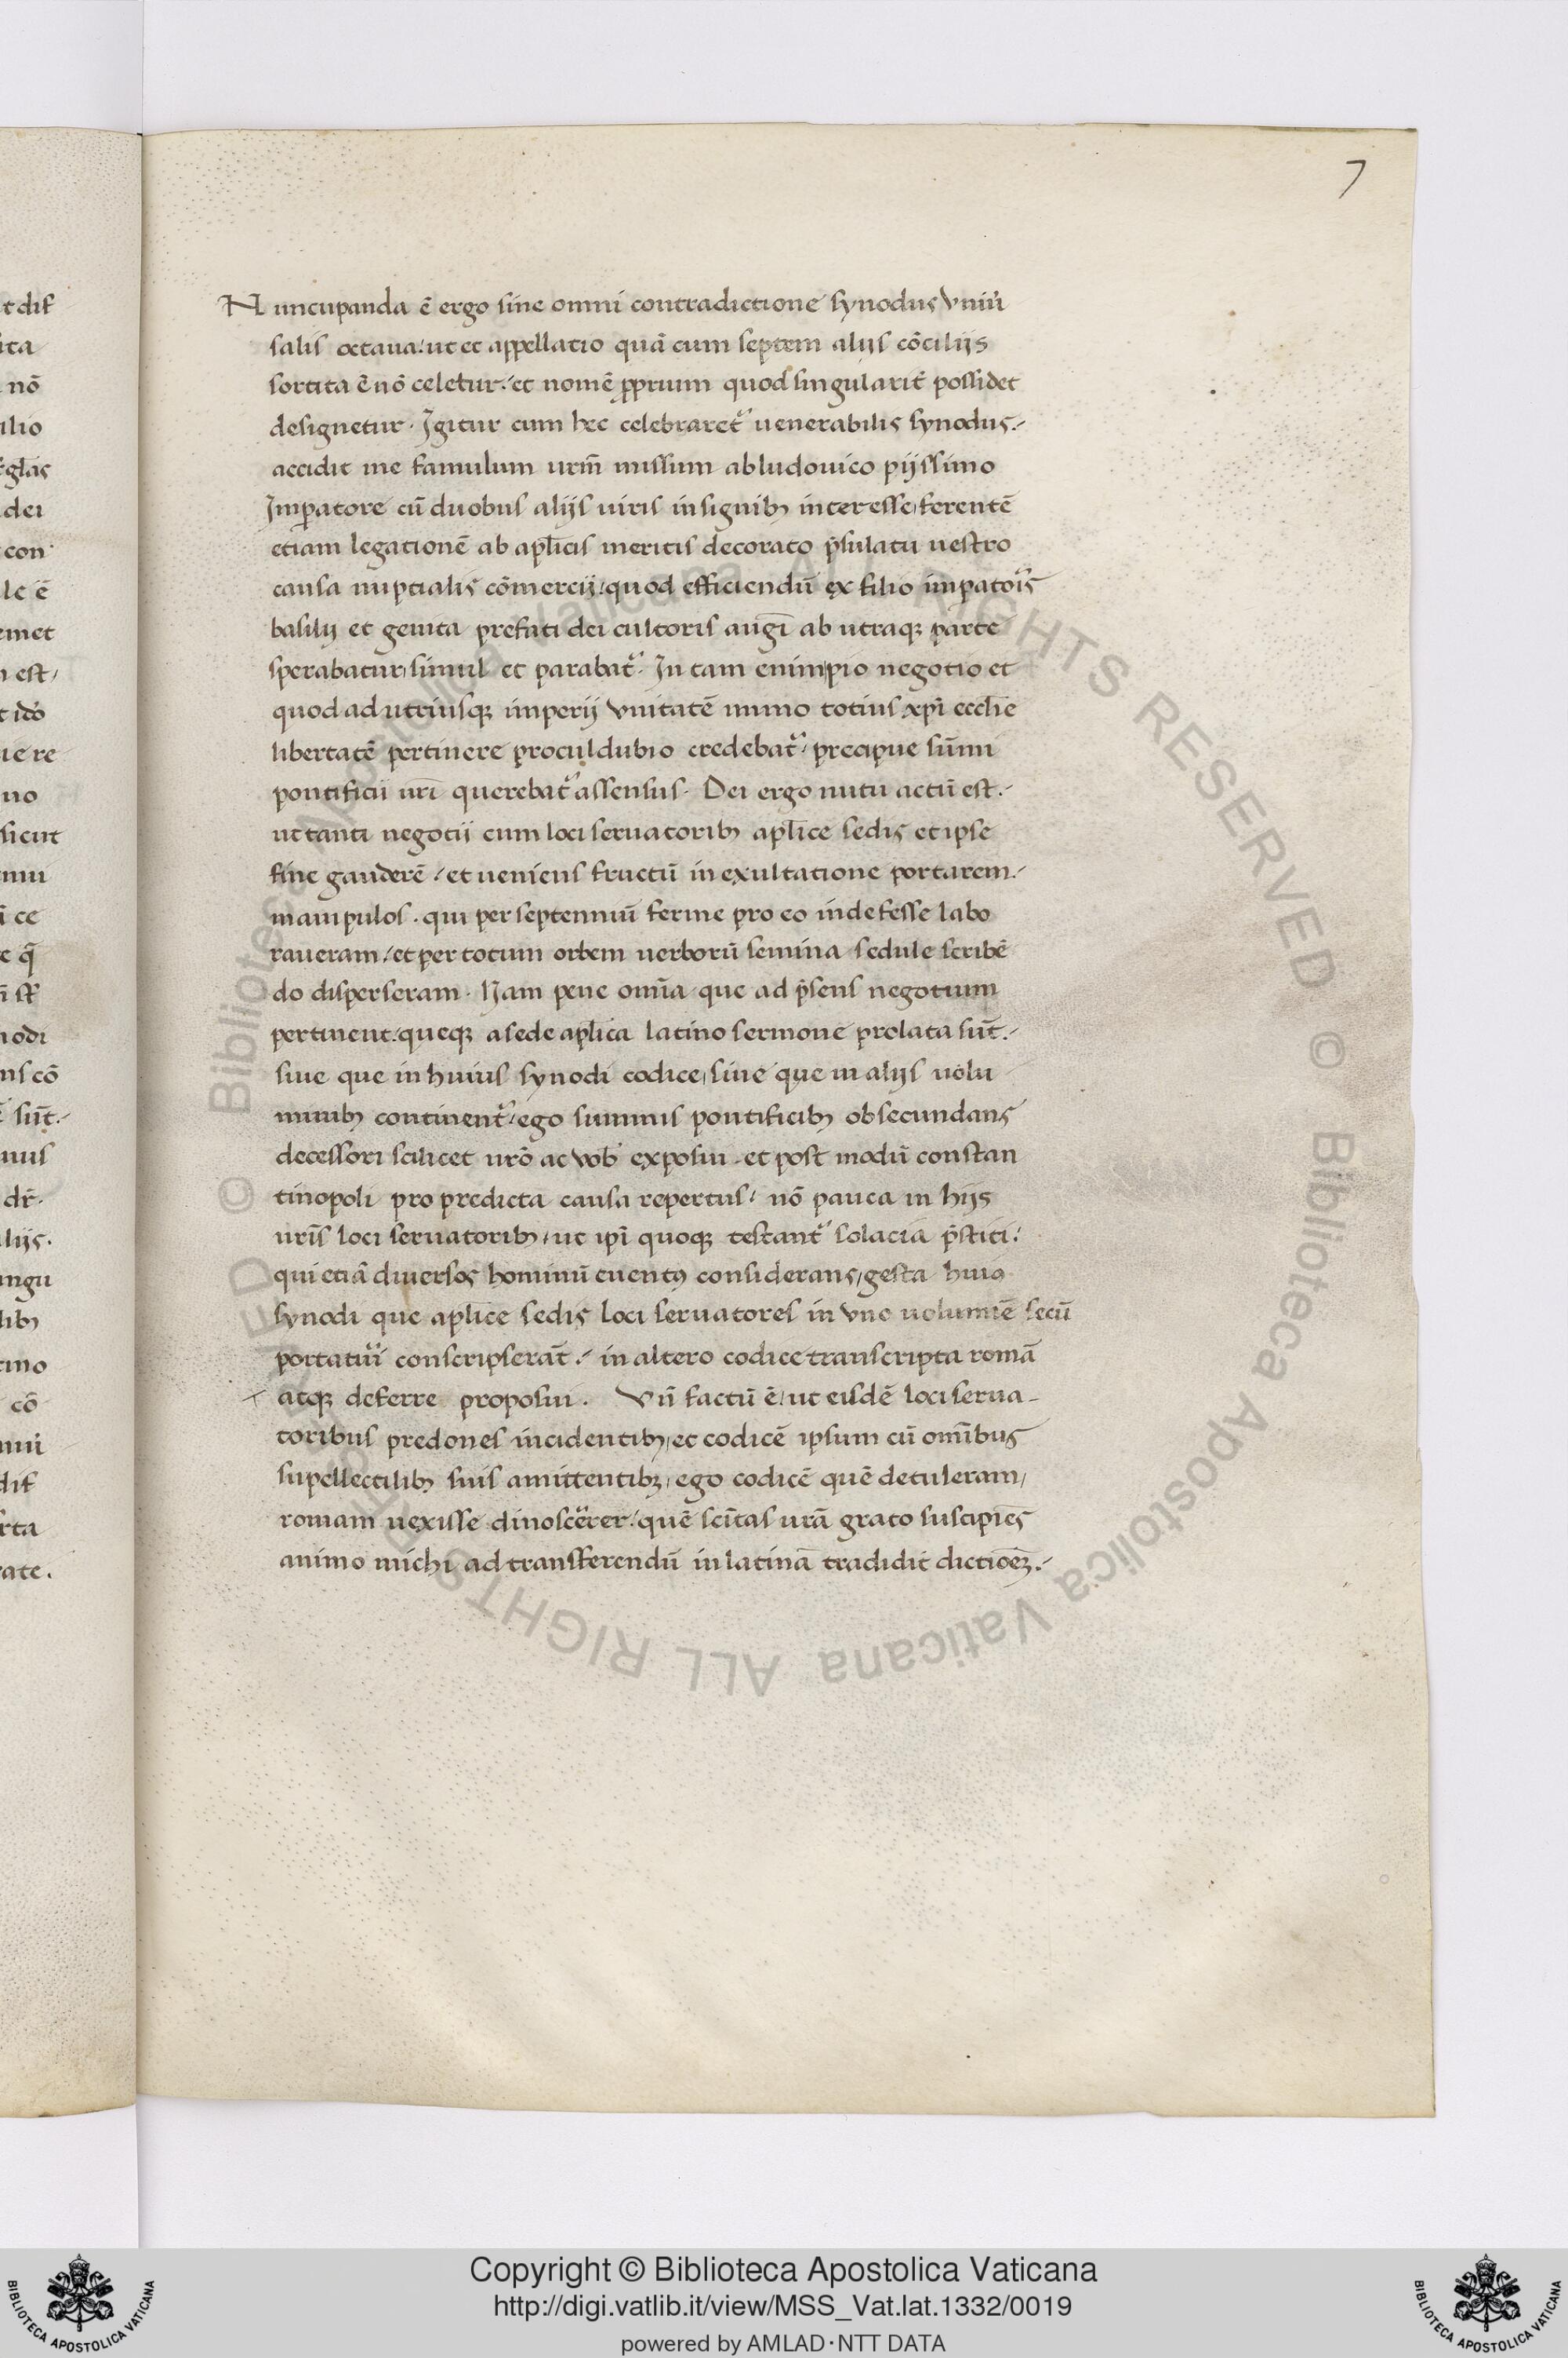 7
Nuncupanda ē ergo sine omni contradictione synodus vniu̾
salis octaua: ut et appellatio quā cum septem alijs cōcilijs
sortita ē nō celetur: et nomē p̱prium quod singularit̾ possidet
designetur. Igitur cum hec celebraret᷑ uenerabilis synodus.
accidit me famulum ur̄m missum ab ludouico pijssimo
Imꝑatore cū duobus alijs uiris insignibꝫ interesse, ferentē
etiam legationē ab apl̄icis meritis decorato p̄sulatu uestro
causa nuptialis cōmercij: quod efficiendū ex filio imꝑatoris
basilij et genita prefati dei cultoris augī ab utraqꝫ parte
sperabatur, simul et parabat᷑. In tam enim pio negotio et
quod ad utriusqꝫ imperij vnitatē immo totius xp̄i eccl̄ie
libertatē pertinere proculdubio credebat᷑: precipue sūmi
pontificii ur̄i querebat᷑ assensus. Dei ergo nutu actū est.
ut tanti negotii cum loci seruatoribꝫ apl̄ice sedis et ipse
fine gauderē: et ueniens fructū in exultatione portarem.
manipulos. qui per septenniū ferme pro eo indefesse labo
raueram: et per totum orbem uerborū semina sedule scribē
do disperseram. Nam pene omīa que ad p̄sens negotium
pertinent: queqꝫ a sede apl̄ica latino sermone prolata sūt.
siue que in huius synodi codice, siue que in alijs uolu
minibꝫ continent᷑: ego summis pontificibꝫ obsecundans
decessori scilicet ur̄o ac vob̾ exposui. et post modū constan
tinopoli pro predicta causa repertus: nō pauca in hijs
ur̄is loci seruatoribꝫ, ut ip̄i quoqꝫ testant᷑ solacia p̄stiti:
qui etiā diuersos hominū euentꝰ considerans, gesta huiꝰ
synodi que apl̄ice sedis loci seruatores in vno uolumīe secū
portaturi conscripserāt: in altero codice transcripta romā
atqꝫ deferre proposui. Vn̄ factū ē, ut eisdē loci serua-
toribus predones incidentibꝫ, et codicē ipsum cū omībus
supellectilibꝫ suis amittentibꝫ, ego codicē quē detuleram,
romam uexisse dinoscerer: quē scītas ur̄a grato suscipiēs
animo michi ad transferendū in latinā tradidit dictiōeꝫ.
Copyright © Biblioteca Apostolica Vaticana
http://digi.vatlib.it/view/MSS_Vat.lat.1332/0019
powered by AMLAD·NTT DATA
BIBLIOTECA APOSTOLICA VATICANA
BIBLIOTECA APOSTOLICA VATICANA
© Biblioteca Apostolica Vaticana ALL RIGHTS RESERVED © Biblioteca Apostolica Vaticana ALL RIGHTS RESERVED